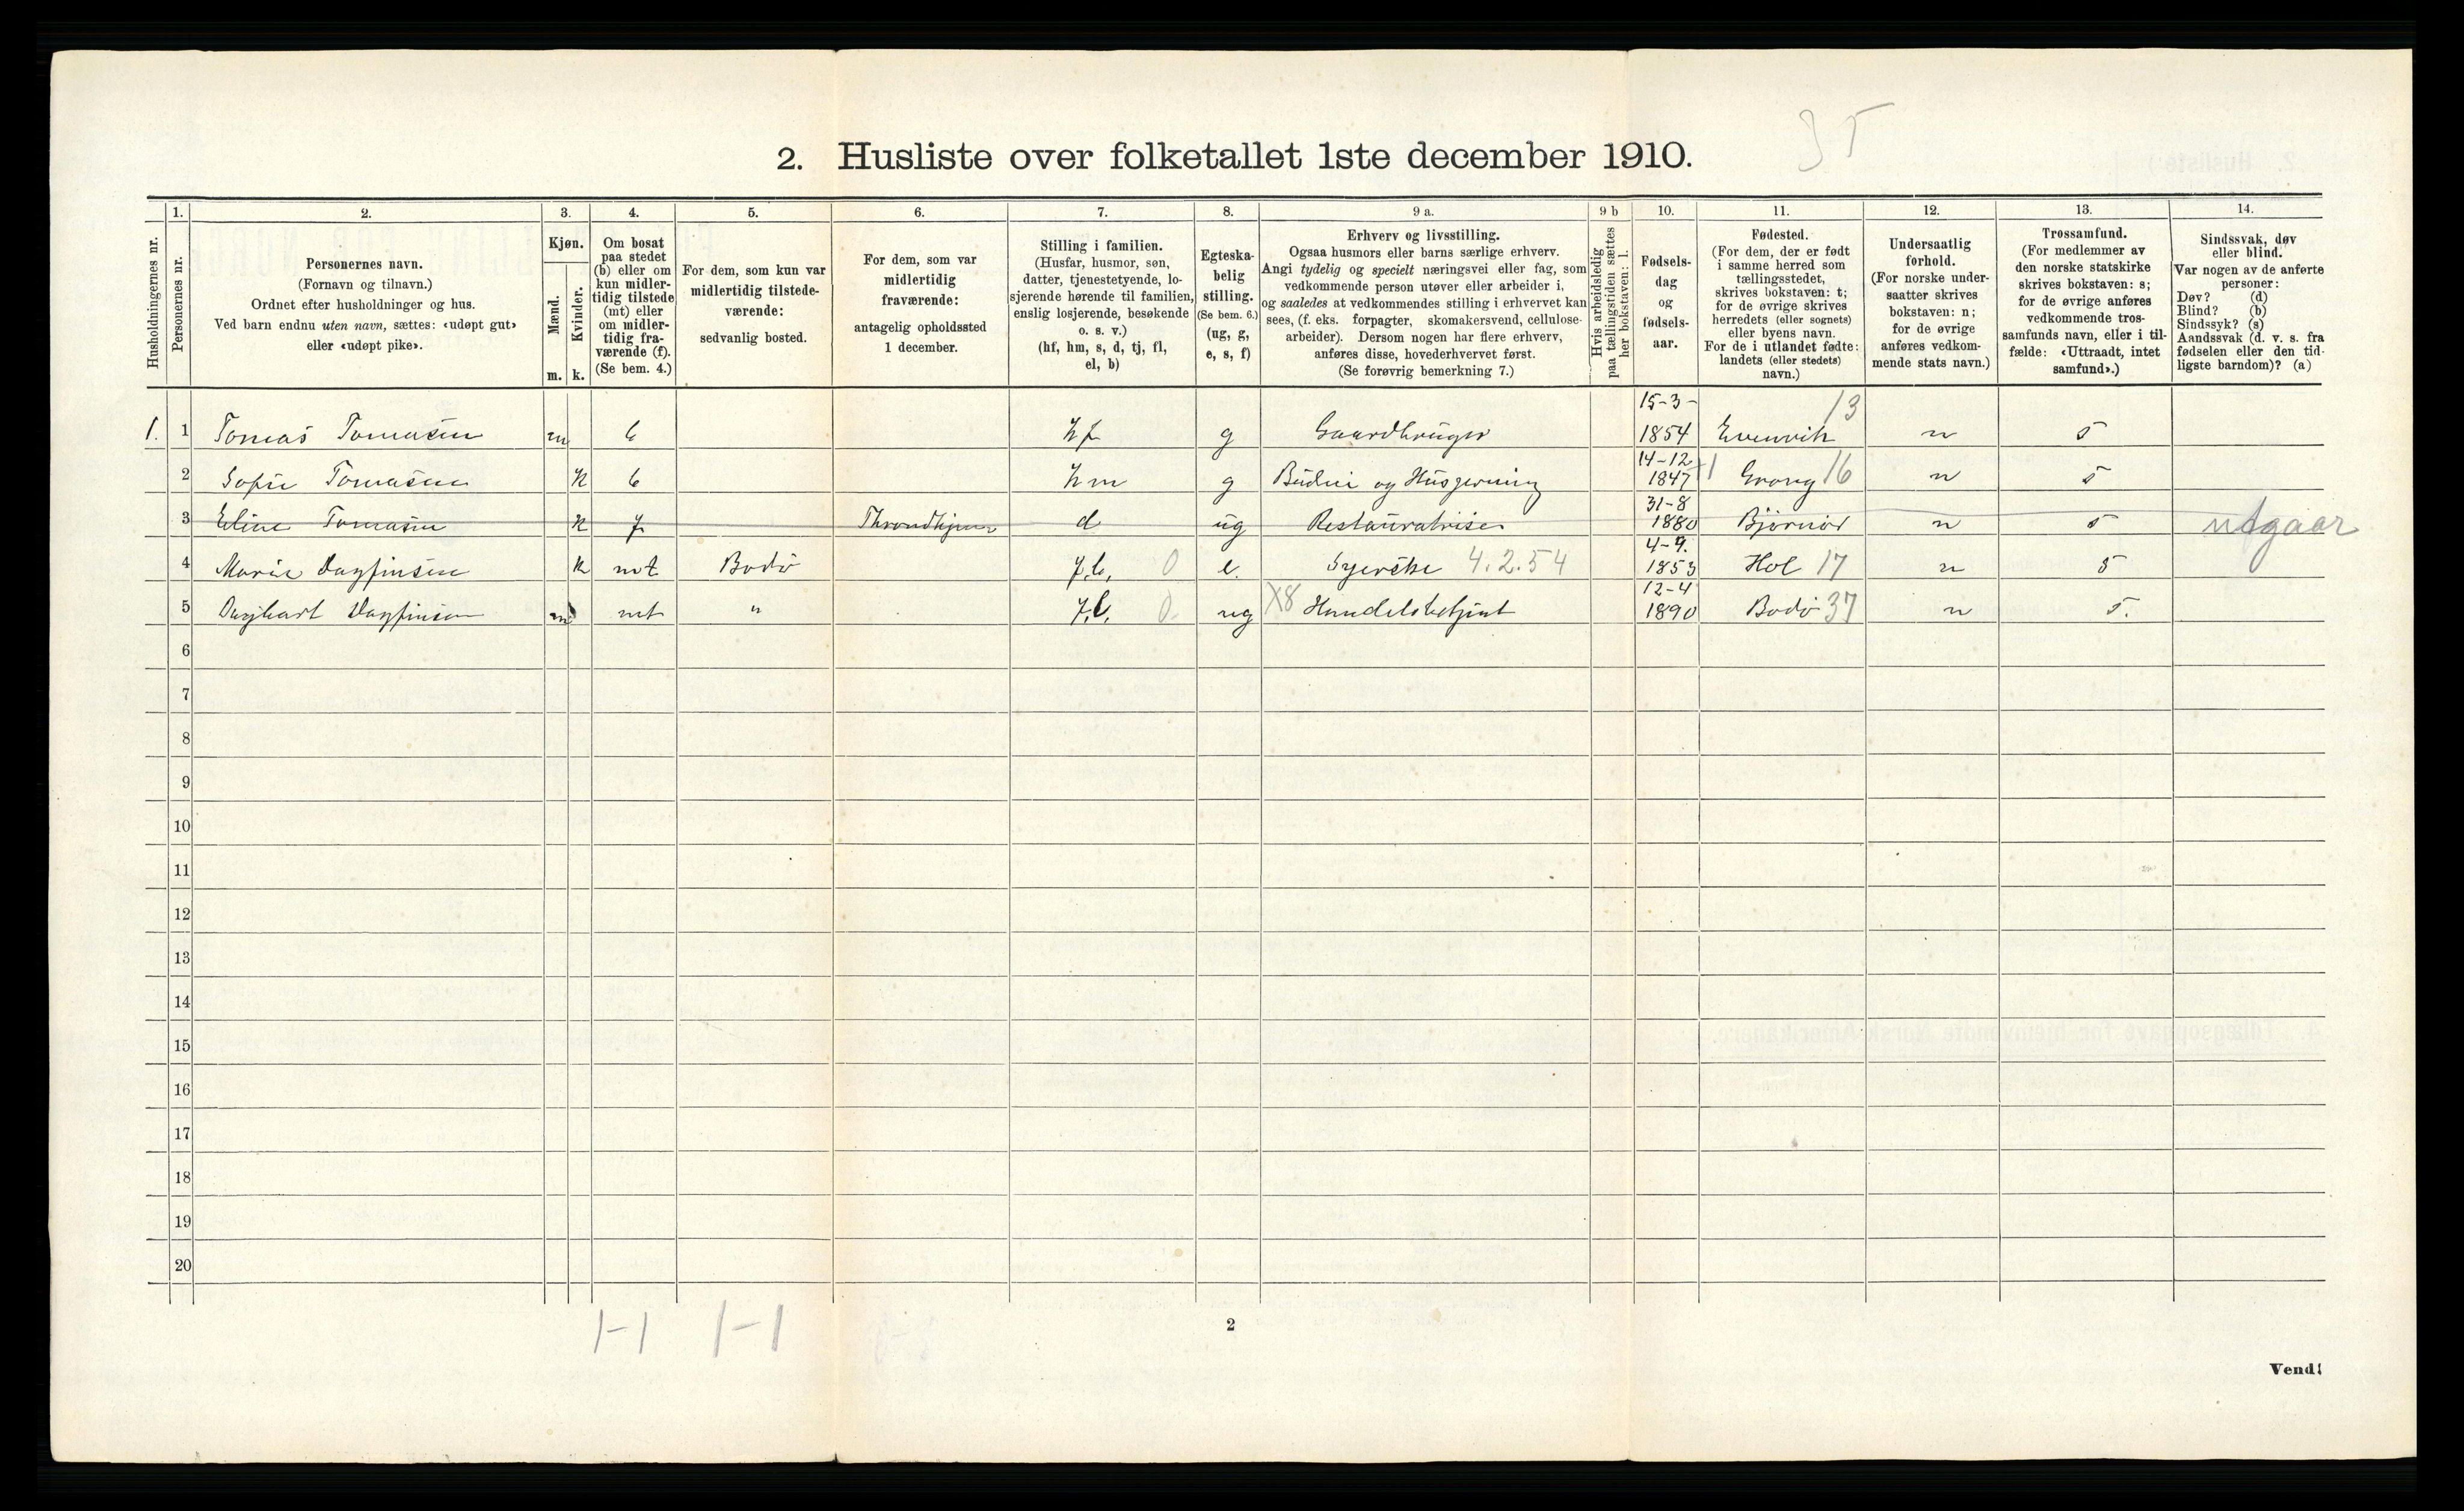 35
2. Husliste over folketallet 1ste december 1910.
1. 2. 3. 4. 5. 6. 7. 8. 9 a. 9 b 10. 11. 12. 13. 14.
Husholdningernes nr.
Personernes nr.
Personernes navn.
(Fornavn og tilnavn.)
Ordnet efter husholdninger og hus.
Ved barn endnu uten navn, sættes: «udøpt gut»
eller «udøpt pike».
Kjøn.
Mænd.
Kvinder.
m. k.
Om bosat
paa stedet
(b) eller om
kun midler-
tidig tilstede
(mt) eller
om midler-
tidig fra-
værende (f).
(Se bem. 4.)
For dem, som kun var
midlertidig tilstede-
værende:
sedvanlig bosted.
For dem, som var
midlertidig
fraværende:
antagelig opholdssted
1 december.
Stilling i familien.
(Husfar, husmor, søn,
datter, tjenestetyende, lo-
sjerende hørende til familien,
enslig losjerende, besøkende
o. s. v.)
(hf, hm, s, d, tj, fl,
el, b)
Egteska-
belig
stilling.
(Se bem. 6.)
(ug, g,
e, s, f)
Erhverv og livsstilling.
Ogsaa husmors eller barns særlige erhverv.
Angi tydelig og specielt næringsvei eller fag, som
vedkommende person utøver eller arbeider i,
og saaledes at vedkommendes stilling i erhvervet kan
sees, (f. eks. forpagter, skomakersvend, cellulose-
arbeider). Dersom nogen har flere erhverv,
anføres disse, hovederhvervet først.
(Se forøvrig bemerkning 7.)
Hvis arbeidsledig
paa tællingstiden sættes
her bokstaven: l.
Fødsels-
dag
og
fødsels-
aar.
Fødested.
(For dem, der er født
i samme herred som
tællingsstedet,
skrives bokstaven: t;
for de øvrige skrives
herredets (eller sognets)
eller byens navn.
For de i utlandet fødte:
landets (eller stedets)
navn.)
Undersaatlig
forhold.
(For norske under-
saatter skrives
bokstaven: n;
for de øvrige
anføres vedkom-
mende stats navn.)
Trossamfund.
(For medlemmer av
den norske statskirke
skrives bokstaven: s;
for de øvrige anføres
vedkommende tros-
samfunds navn, eller i til-
fælde: «Uttraadt, intet
samfund».)
Sindssvak, døv
eller blind.
Var nogen av de anførte
personer:
Døv? (d)
Blind? (b)
Sindssyk? (s)
Aandssvak (d. v. s. fra
fødselen eller den tid-
ligste barndom)? (a)
1. 1 Tomas Tomasen m b hf g Gaardbruger 15-3-1854 Evenvik 13 n s
2 Sofie Tomasen k b hm g Budeie og Husgerning 14-12 1847 Grong 16 n s
3 Eline Tomasen k f Throndhjem d ug Restauratrise 31-8 1880 Bjørnør n s utgaar
4 Marie Dagfinsen k mt Bodø f.l. 0 e. Syerske 4.2.54 4-9. 1853 Hol 17 n s
5 Daghart Dagfinsen m mt " f.l. 0. ug X8 Handelsbetjent 12-4 1890 Bodø 37 n s.
6
7
8
9
10
11
12
13
14
15
16
17
18
19
20
1-1 1-1
2
Vend!